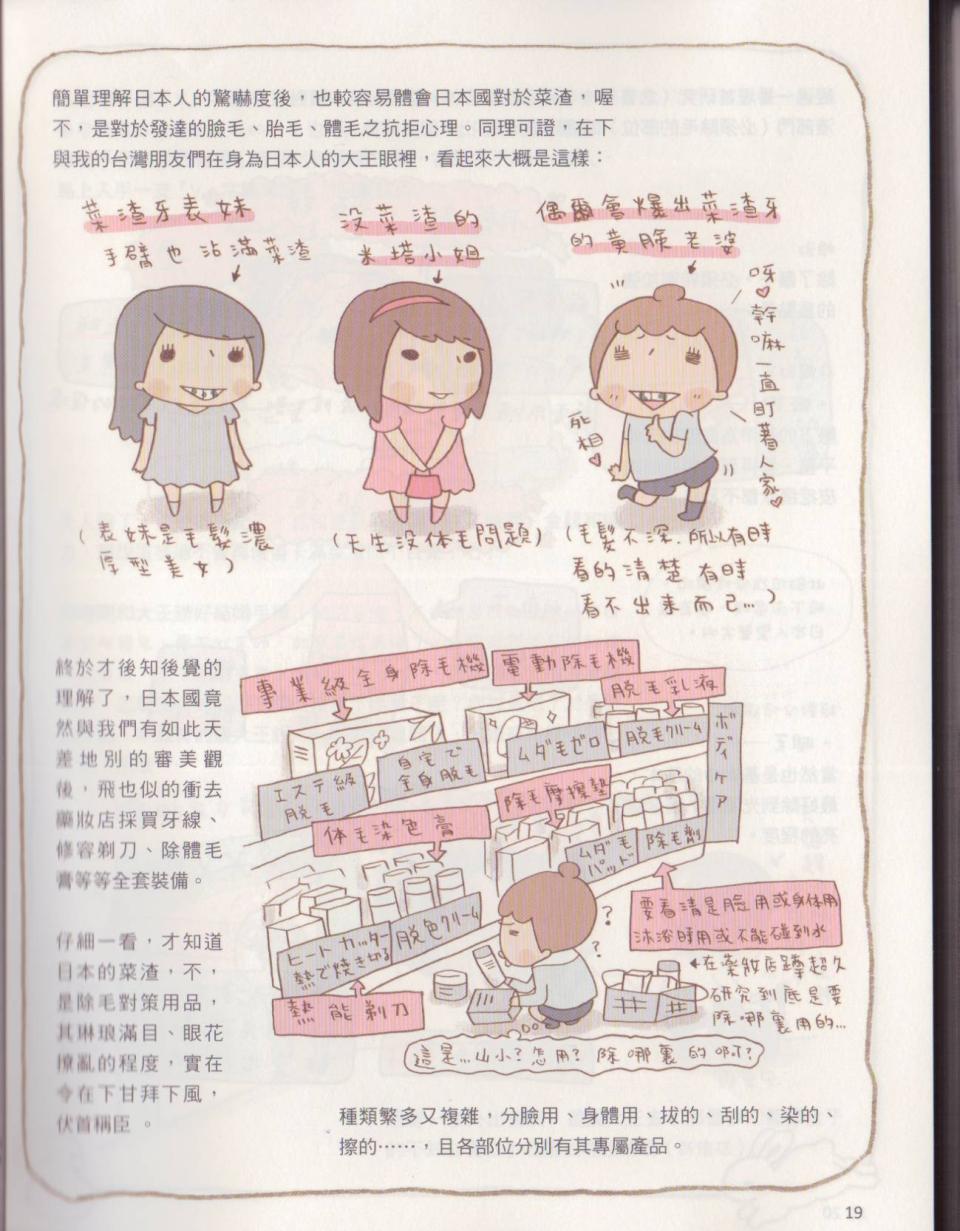 簡單理解日本人的驚嚇度後，也較容易體會日本國對於菜渣，喔
不，是對於發達的臉毛、胎毛、體毛之抗拒心理。同理可證，在下
與我的台灣朋友們在身為日本人的大王眼裡，看起來大概是這樣：
菜渣牙表妹
手臂也沾滿菜渣
没菜渣的
米塔小姐
偶爾會爆出菜渣牙
的黄臉老婆
呀♡幹嘛一直盯著人家♡
死相♡
(表妹是毛髮濃
厚型美女)
(天生没体毛問題)
(毛髮不深.所以有時
看的清楚 有時
看不出来而已...)
終於才後知後覺的
理解了，日本國竟
然與我們有如此天
差地別的審美觀
後，飛也似的衝去
藥妝店採買牙線、
修容剃刀、除體毛
膏等等全套裝備。
仔細一看，才知道
日本的菜渣，不，
是除毛對策用品，
其琳琅滿目、眼花
撩亂的程度，實在
令在下甘拜下風，
伏首稱臣 。
專業級全身除毛機
電動除毛機
脱毛乳液
エステ級
脱毛
自宅で
全身脱毛
ムダ毛ゼロ
脱毛クリーム
ボディケア
体毛染色膏
除毛摩擦墊
ムダ毛
パッド
除毛劑
ヒートカッター
熱で焼き切る
脱色クリーム
熱能剃刀
要看清是臉用或身体用
沐浴時用或不能碰到水
?
?
在薬妝店蹲超久
研究到底是要
除哪裏用的...
這是...山小?怎用? 除哪裏的啊?
種類繁多又複雜，分臉用、身體用、拔的、刮的、染的、
擦的……，且各部位分別有其專屬產品。
19